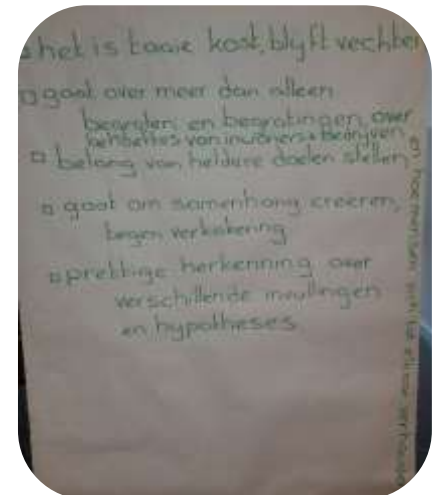 het is taaie kost, blijft vechten
gaat over meer dan alleen
begroten en begrotingen, over
behoeftes van inwoners + bedrijven
belang van heldere doelen stellen,
gaat om samenhang creëren,
tegen verkokering
prettige herkenning over
verschillende invullingen
en hypotheses
en hoe mensen zich tot elkaar verhouden